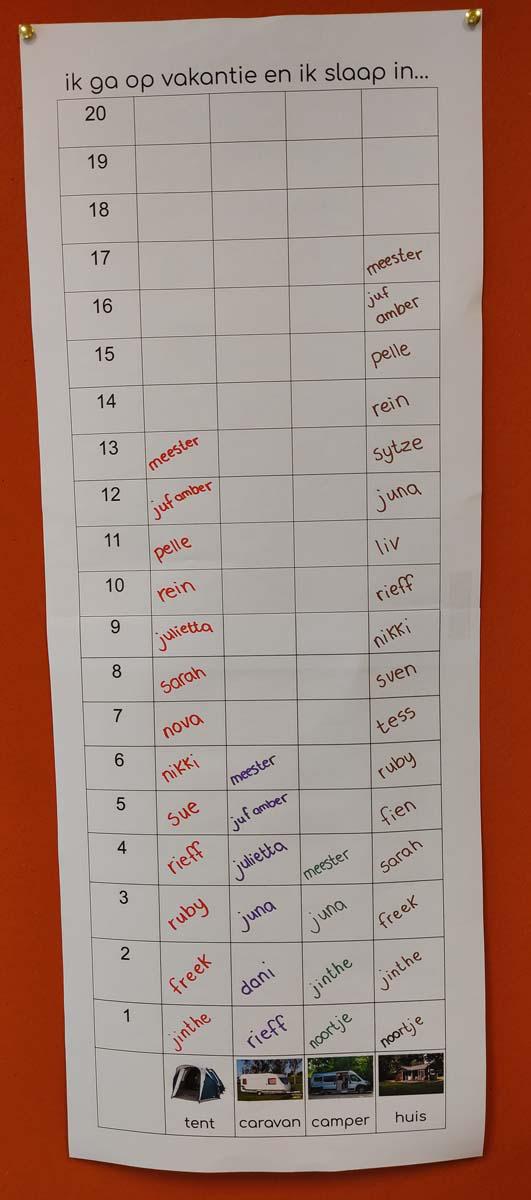 ik ga op vakantie en ik slaap in...
20
19
18
17 meester
16 juf amber
15 pelle
14 rein
13 meester sytze
12 juf amber juna
11 pelle liv
10 rein rieff
9 julietta nikki
8 sarah sven
7 nova tess
6 nikki meester ruby
5 sue juf amber fien
4 rieff julietta meester sarah
3 ruby juna juna freek
2 freek dani jinthe jinthe
1 jinthe rieff noortje noortje
tent caravan camper huis